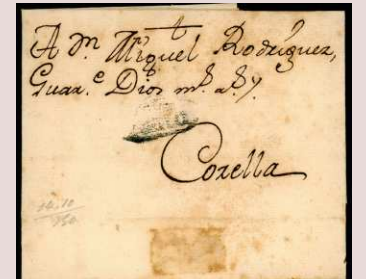 A Dn. Miguel Rodriguez,
Guar.e Dios ms. as. y
Corella